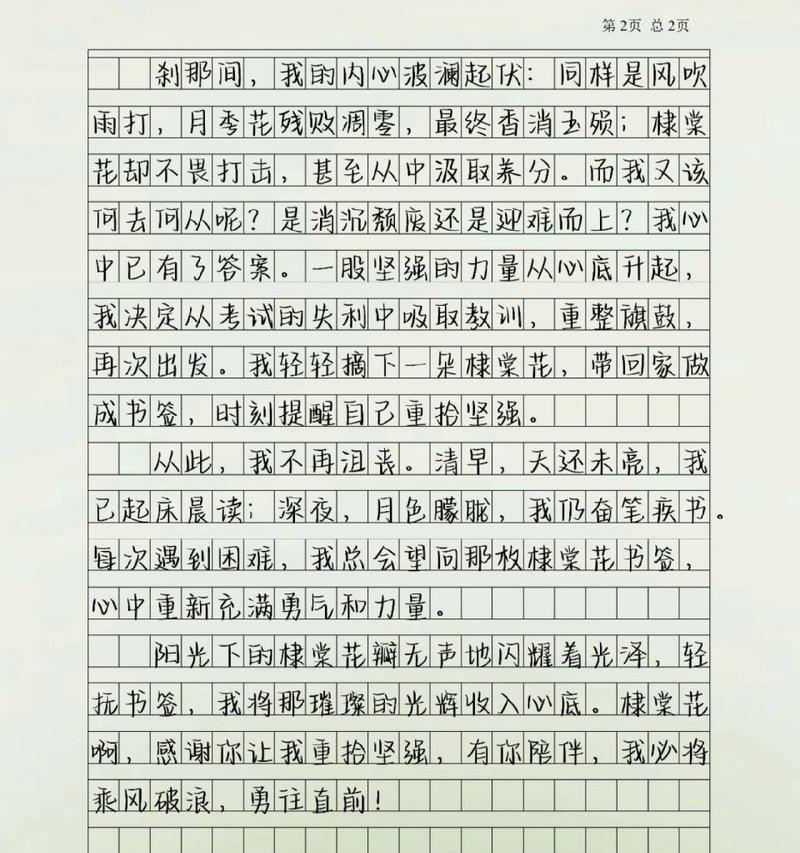 第2页 总2页
刹那间，我的内心波澜起伏：同样是风吹
雨打，月季花残败凋零，最终香消玉殒；棣棠
花却不畏打击，甚至从中汲取养分。而我又该
何去何从呢？是消沉颓废还是迎难而上？我心
中已有了答案。一股坚强的力量从心底升起，
我决定从考试的失利中吸取教训，重整旗鼓，
再次出发。我轻轻摘下一朵棣棠花，带回家做
成书签，时刻提醒自己重拾坚强。
从此，我不再沮丧。清早，天还未亮，我
已起床晨读；深夜，月色朦胧，我仍奋笔疾书。
每次遇到困难，我总会望向那枚棣棠花书签，
心中重新充满勇气和力量。
阳光下的棣棠花瓣无声地闪耀着光泽，轻
抚书签，我将那璀璨的光辉收入心底。棣棠花
啊，感谢你让我重拾坚强，有你陪伴，我必将
乘风破浪，勇往直前！